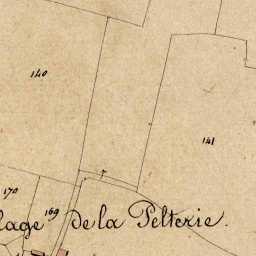 140
141
170
169
lage de la Pelterie.